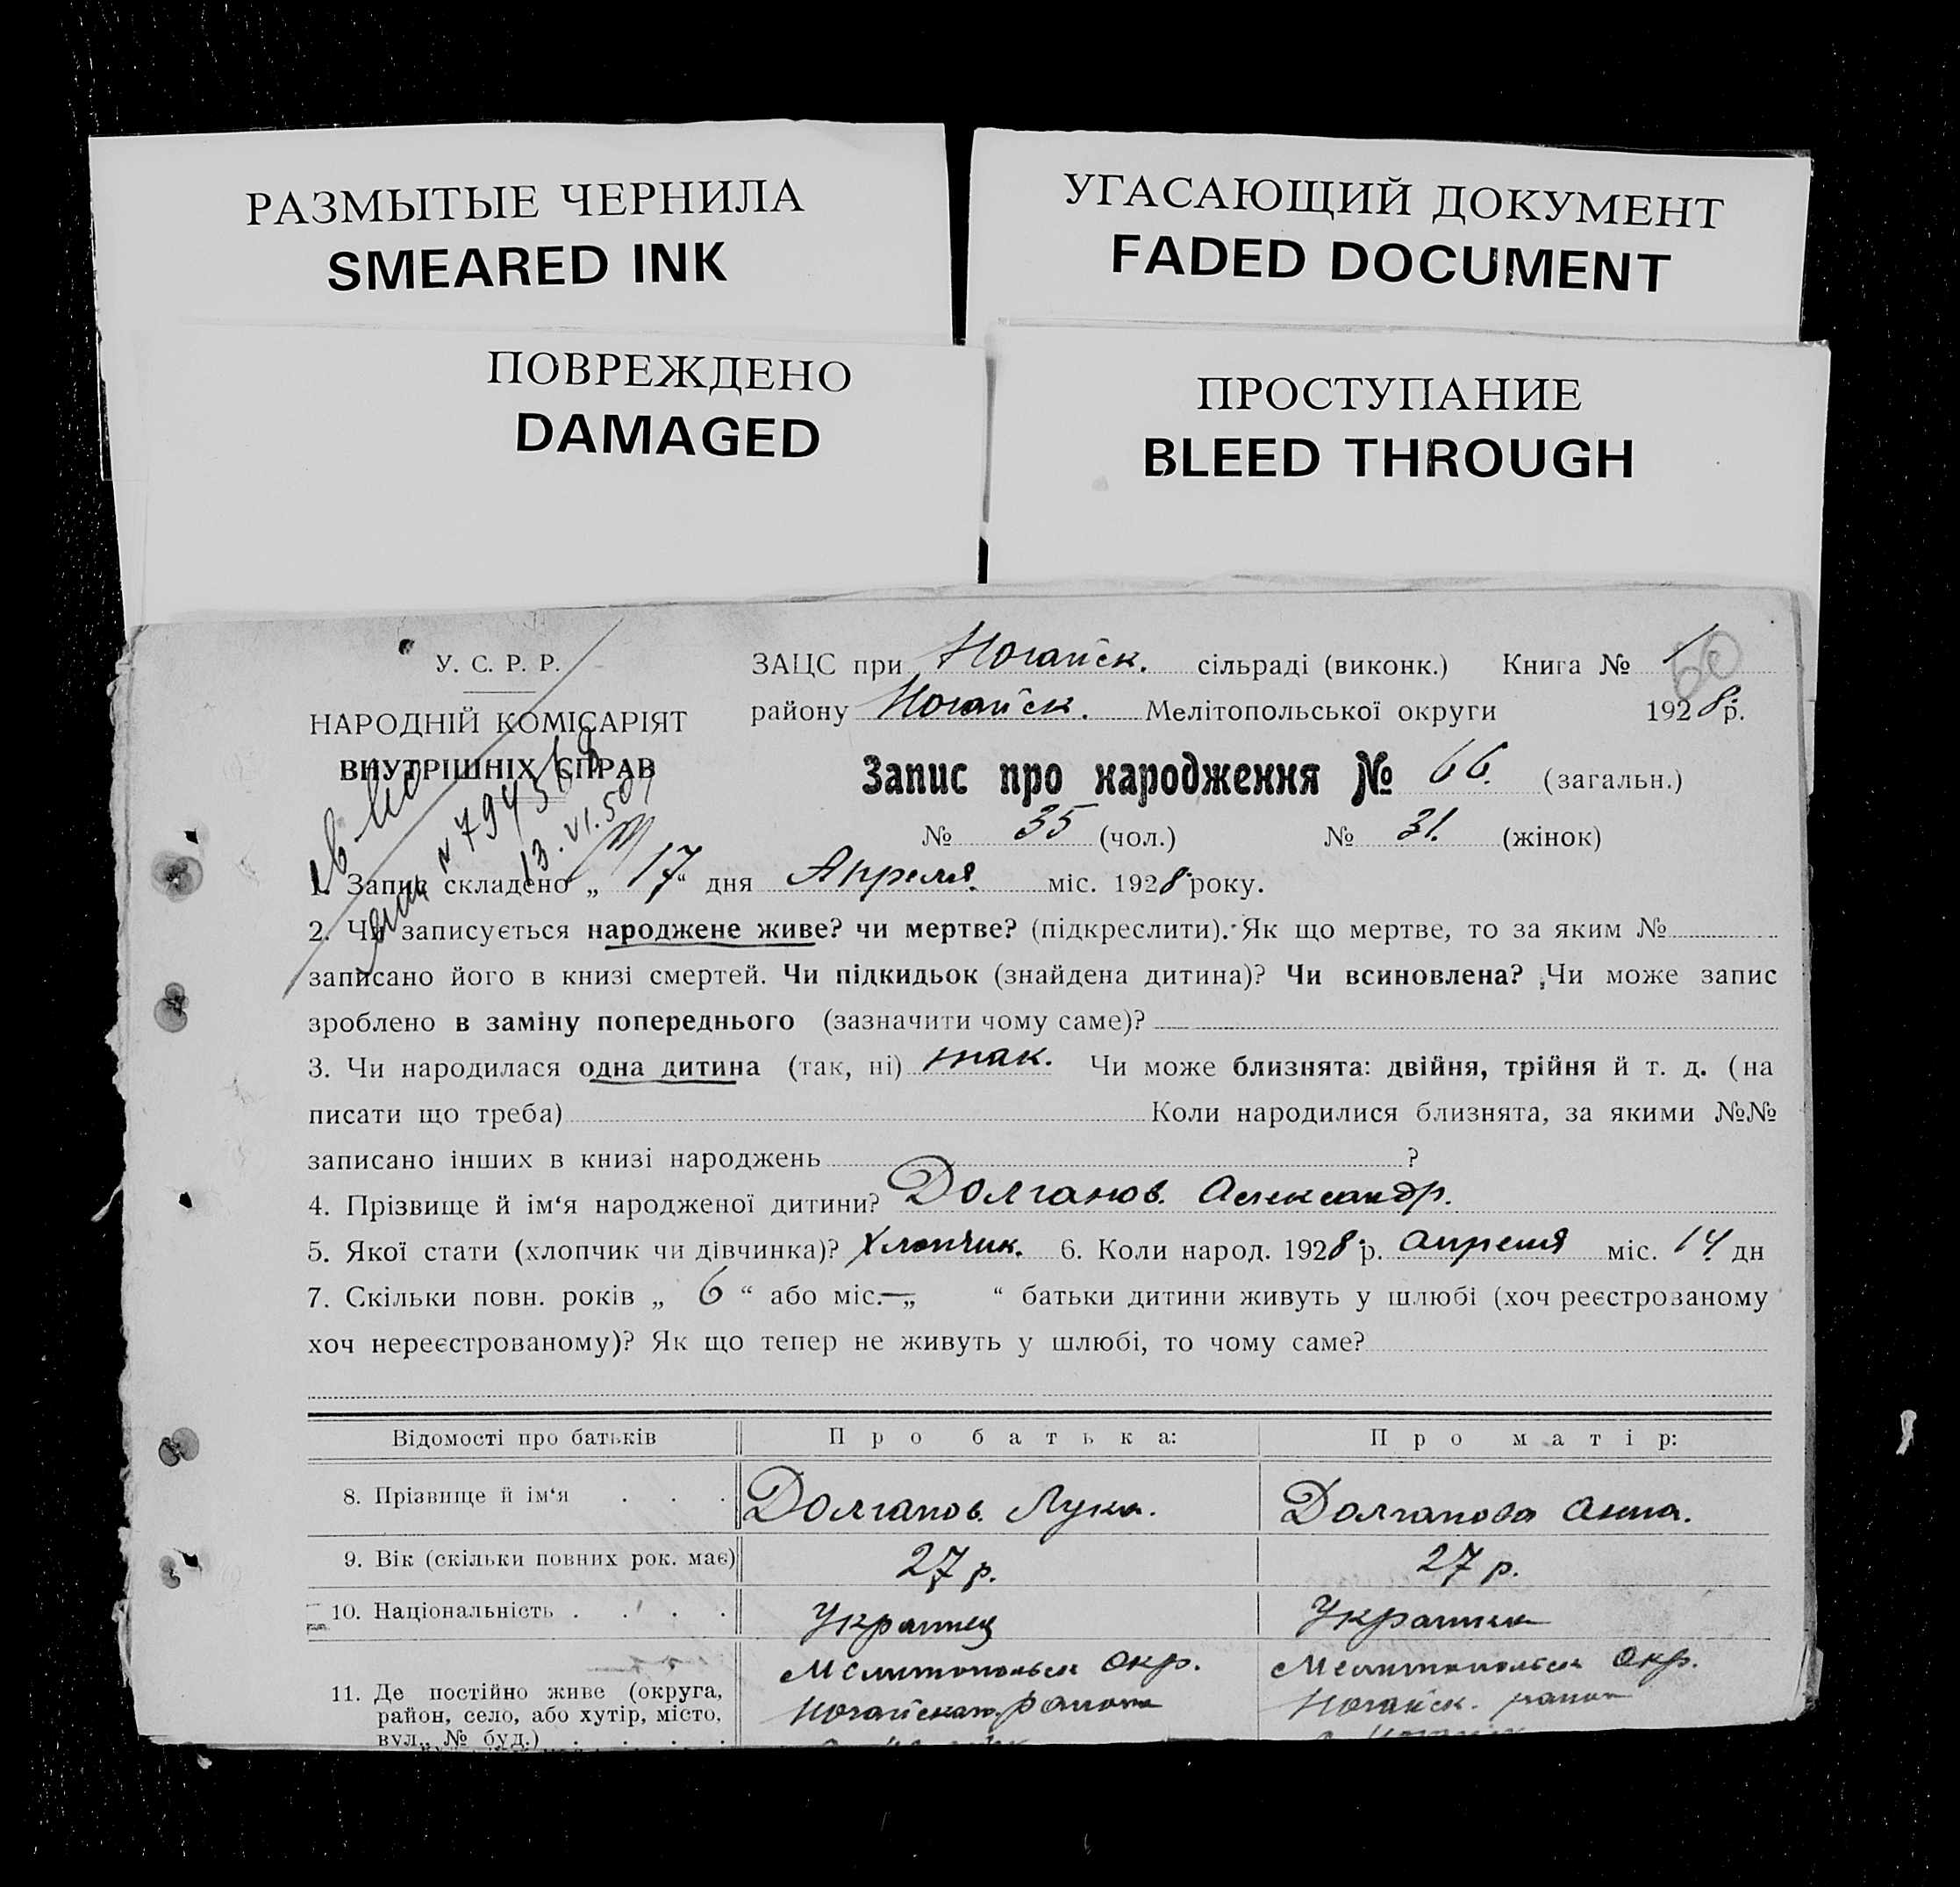 РАЗМЫТЫЕ ЧЕРНИЛА
SMEARED INK
УГАСАЮЩИЙ ДОКУМЕНТ
FADED DOCUMENT
ПОВРЕЖДЕНО
DAMAGED
ПРОСТУПАНИЕ
BLEED THROUGH
У. С. Р. Р.
НАРОДНІЙ КОМІСАРІЯТ
ВНУТРІШНІХ СПРАВ
13.VI.50
60
ЗАЦС при Ногайск. сільраді (виконк.) Книга № 1
району Ногайск. Мелітопольської округи 1928 р.
Запис про народження № 66. (загальн.)
№ 35 (чол.) № 31. (жінок)
1. Запис складено „ 17 “ дня Апреля. міс. 1928 року.
2. Чи записується народжене живе? чи мертве? (підкреслити). Як що мертве, то за яким №
записано його в книзі смертей. Чи підкидьок (знайдена дитина)? Чи всиновлена? Чи може запис
зроблено в заміну попереднього (зазначити чому саме)?
3. Чи народилася одна дитина (так, ні) так. Чи може близнята: двійня, трійня й т. д. (на
писати що треба) Коли народилися близнята, за якими №№
записано інших в книзі народжень ?
4. Прізвище й ім‘я народженої дитини? Долганов. Александр.
5. Якої стати (хлопчик чи дівчинка)? Хлопчик. 6. Коли народ. 1928 р. апреля міс. 14 дн
7. Скільки повн. років „ 6 “ або міс. — „ “ батьки дитини живуть у шлюбі (хоч реєстрованому
хоч нереєстрованому)? Як що тепер не живуть у шлюбі, то чому саме?
Відомості про батьків Про батька: Про матір:
8. Прізвище й ім‘я . . . Долганов. Лука. Долганова Анна.
9. Вік (скільки повних рок. має) 27 р. 27 р.
10. Національність . . . . Украинец Украинка
11. Де постійно живе (округа, Мелитопольск Окр. Мелитопольск Окр.
район, село, або хутір, місто, Ногайскаго района Ногайск. район
вул., № буд.) . . . .